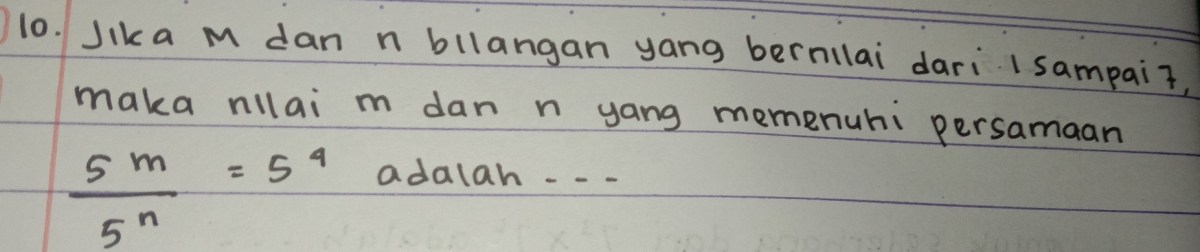 10. Jika M dan n bilangan yang bernilai dari 1 sampai 7,
maka nilai m dan n yang memenuhi persamaan
5^m / 5^n = 5^4 adalah ---